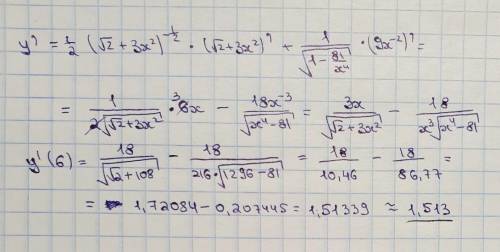 y' = 1/2 (√2 + 3x²)^(-1/2) · (√2 + 3x²)' + 1/√(1 - 81/x⁴) · (9x⁻²)' =
= 1/(2√(√2 + 3x²)) · ³6x - 18x⁻³/√(x⁴ - 81) = 3x/√(√2 + 3x²) - 18/(x³√(x⁴ - 81))
y'(6) = 18/√(√2 + 108) - 18/(216·√(1296 - 81)) = 18/10,46 - 18/86,77 =
= 1,72084 - 0,207445 = 1,51339 ≈ 1,513